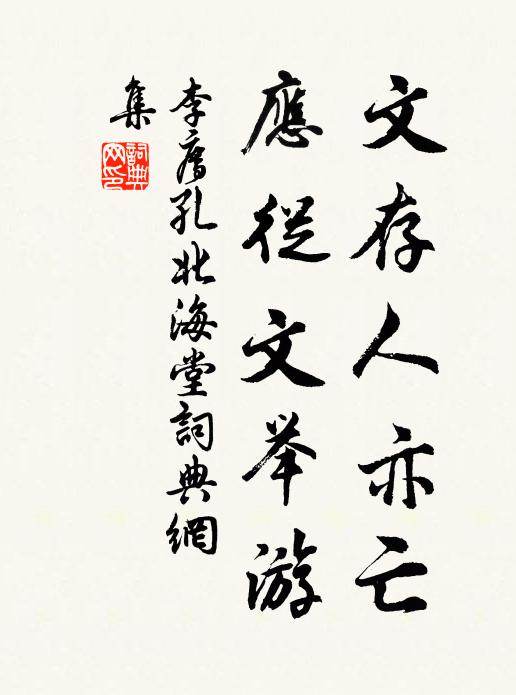 文存人亦亡
應從文举游
李膺孔北海堂詞典網
集
詞典网印